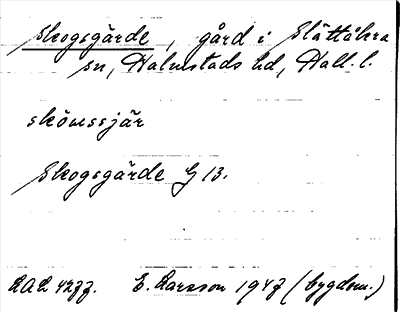 Skogsgärde, gård i Slättåkra
sn, Halmstads hd, Hall. l.
sköussjär
Skogsgärde G 13.
LAL 4277. E. Larsson 1947 (bygdem.)